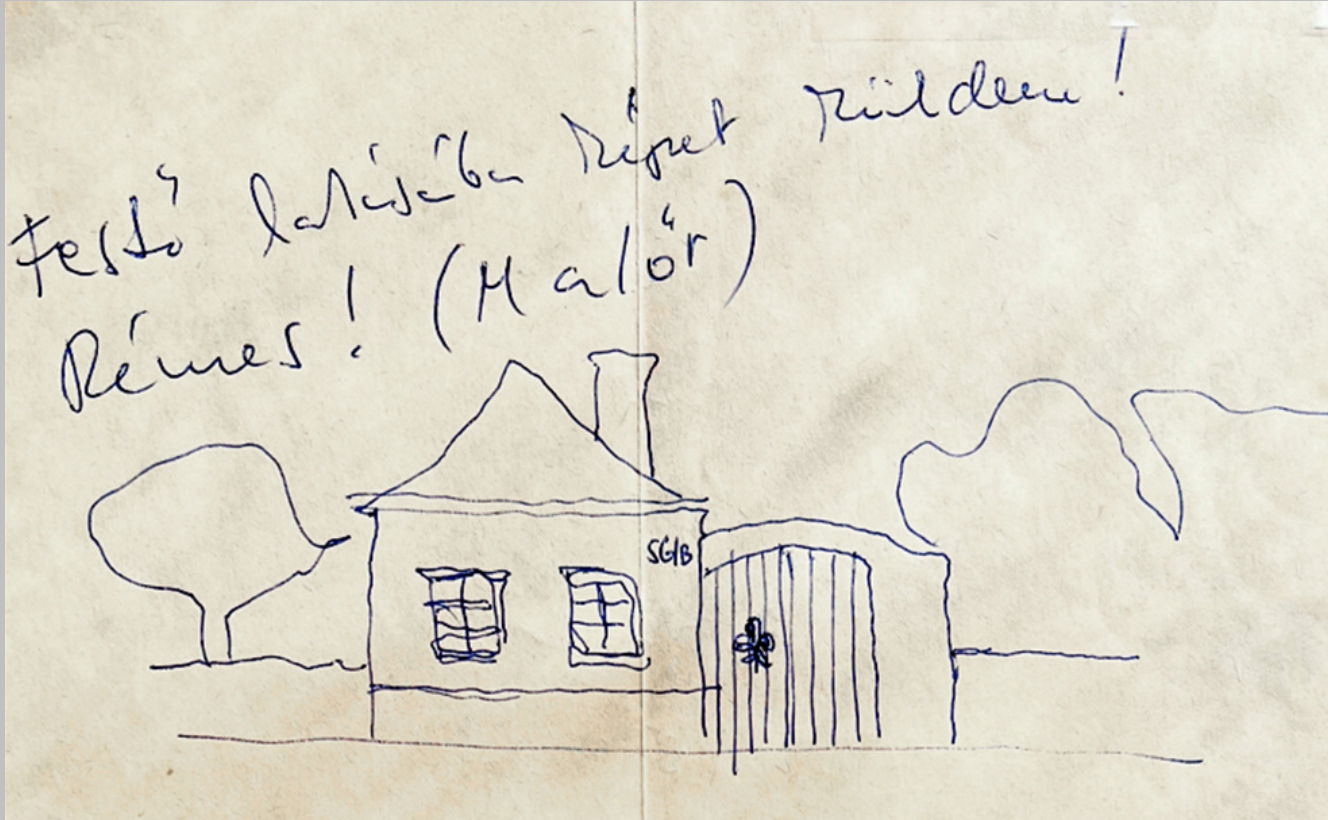 Festő lakásába képet küldeni!
Rémes! (Malőr)
SG/B